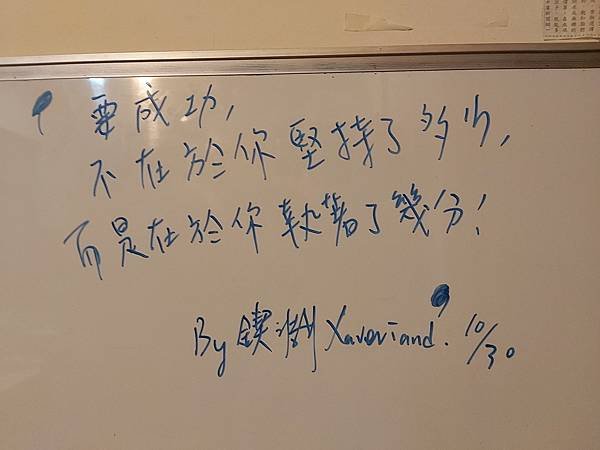 要成功,
不在於你堅持了多少,
而是在於你執著了幾分!
By 鍥 Xaveriand. 10/30